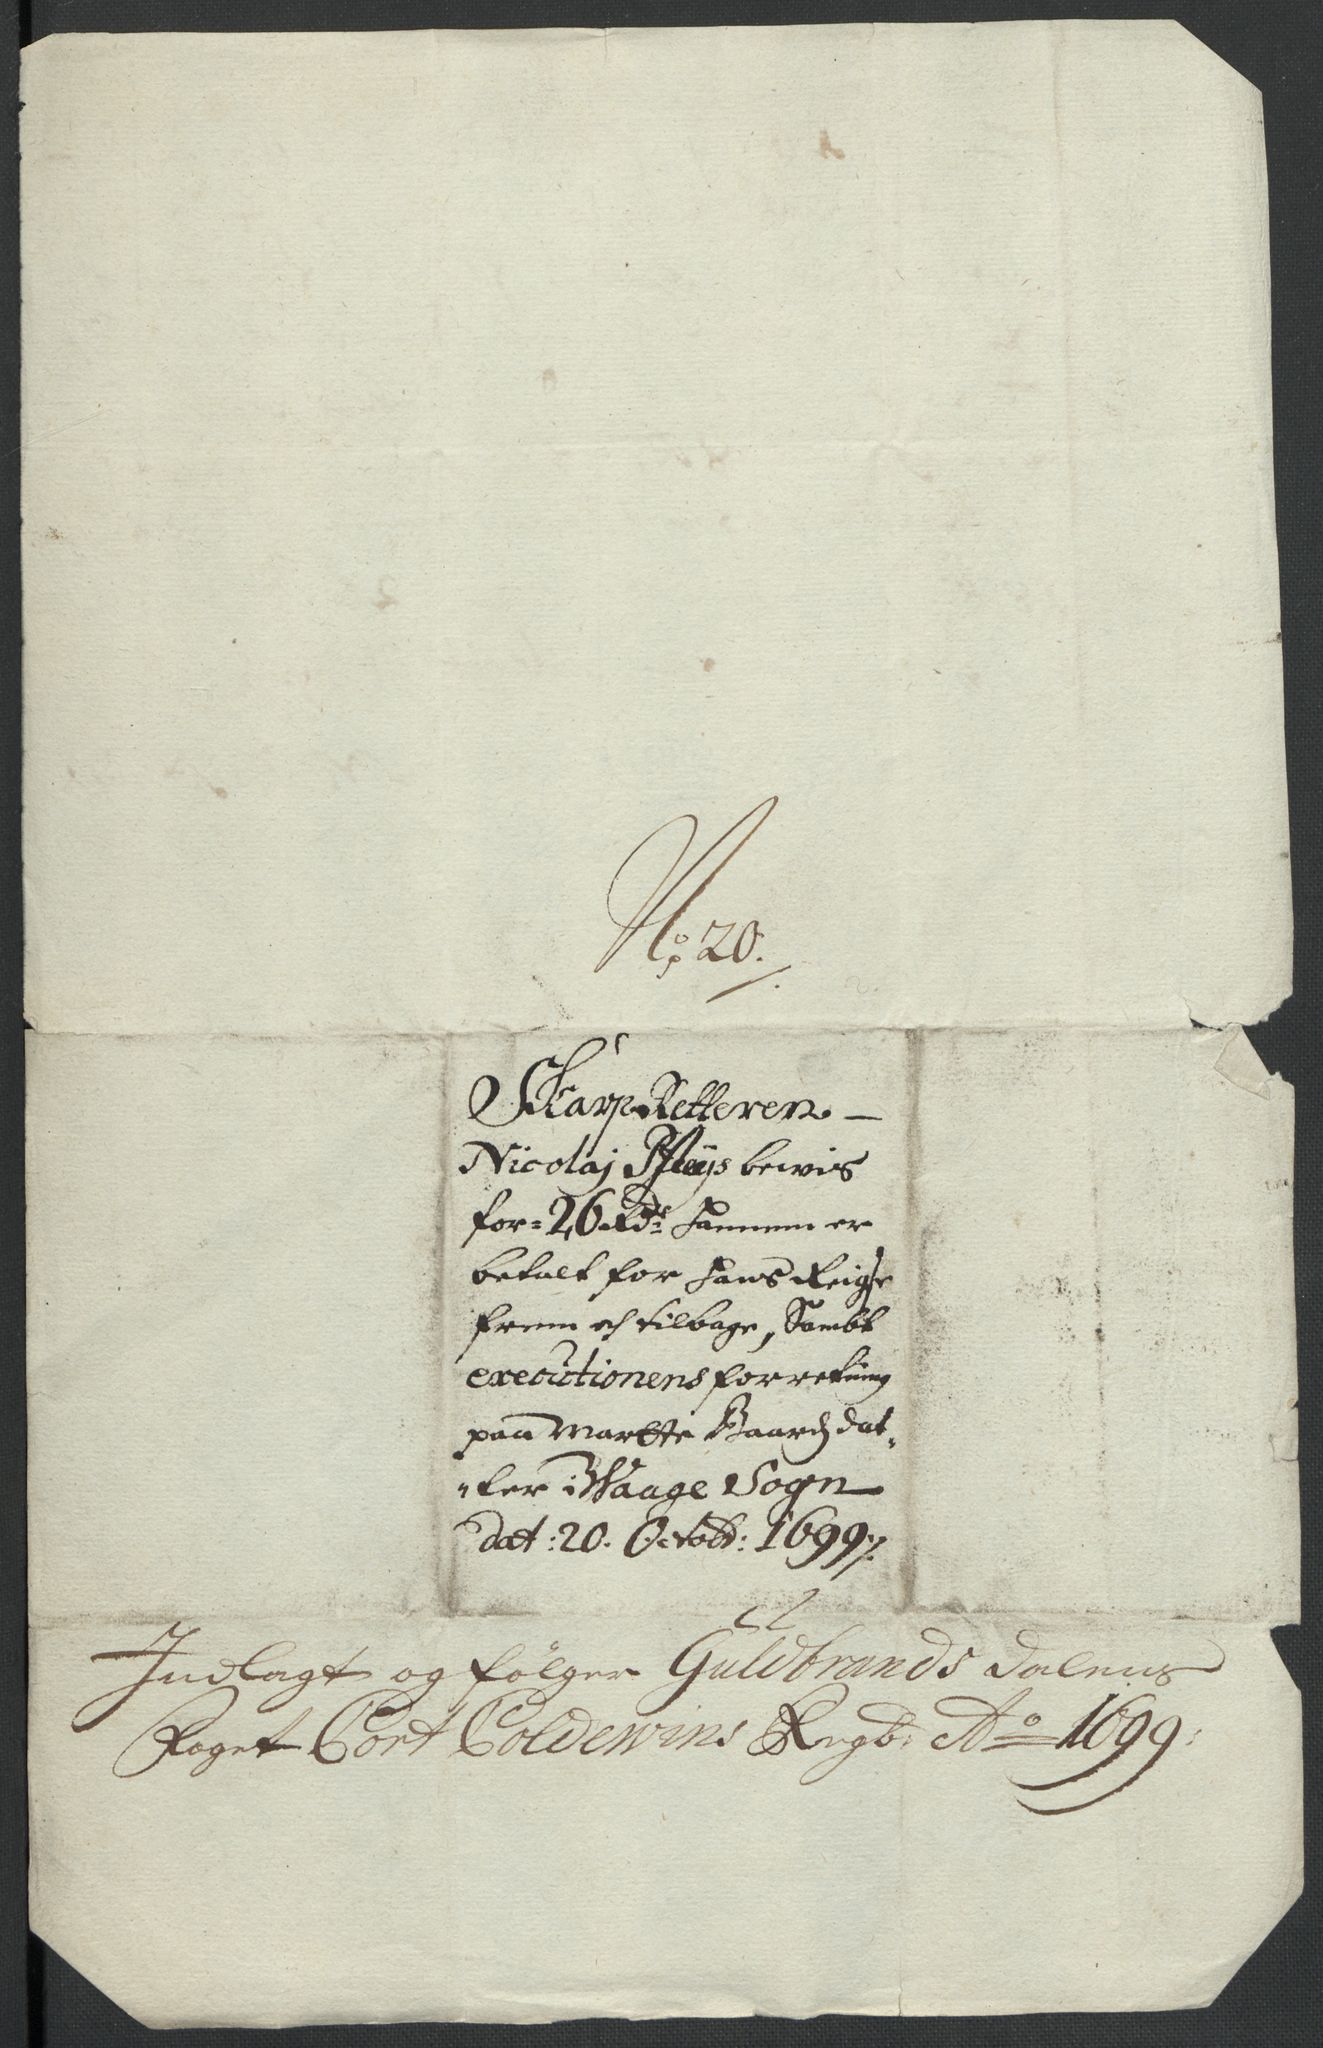 No 20.
SkarpRetteren
Nicolaj Pfleÿs bewis
for= 26 Rdr: hannem er
betalt for hans Reigse
frem och tilbage, Sambt
executionens forretning
paa Martte Baardz dat-
ter i Waage Sogn
dat: 20. Octobr: 1699 ⁒
Indlagt og følger Guldbrands dalens
Foget Cort Coldewins Regb: Ao 1699: